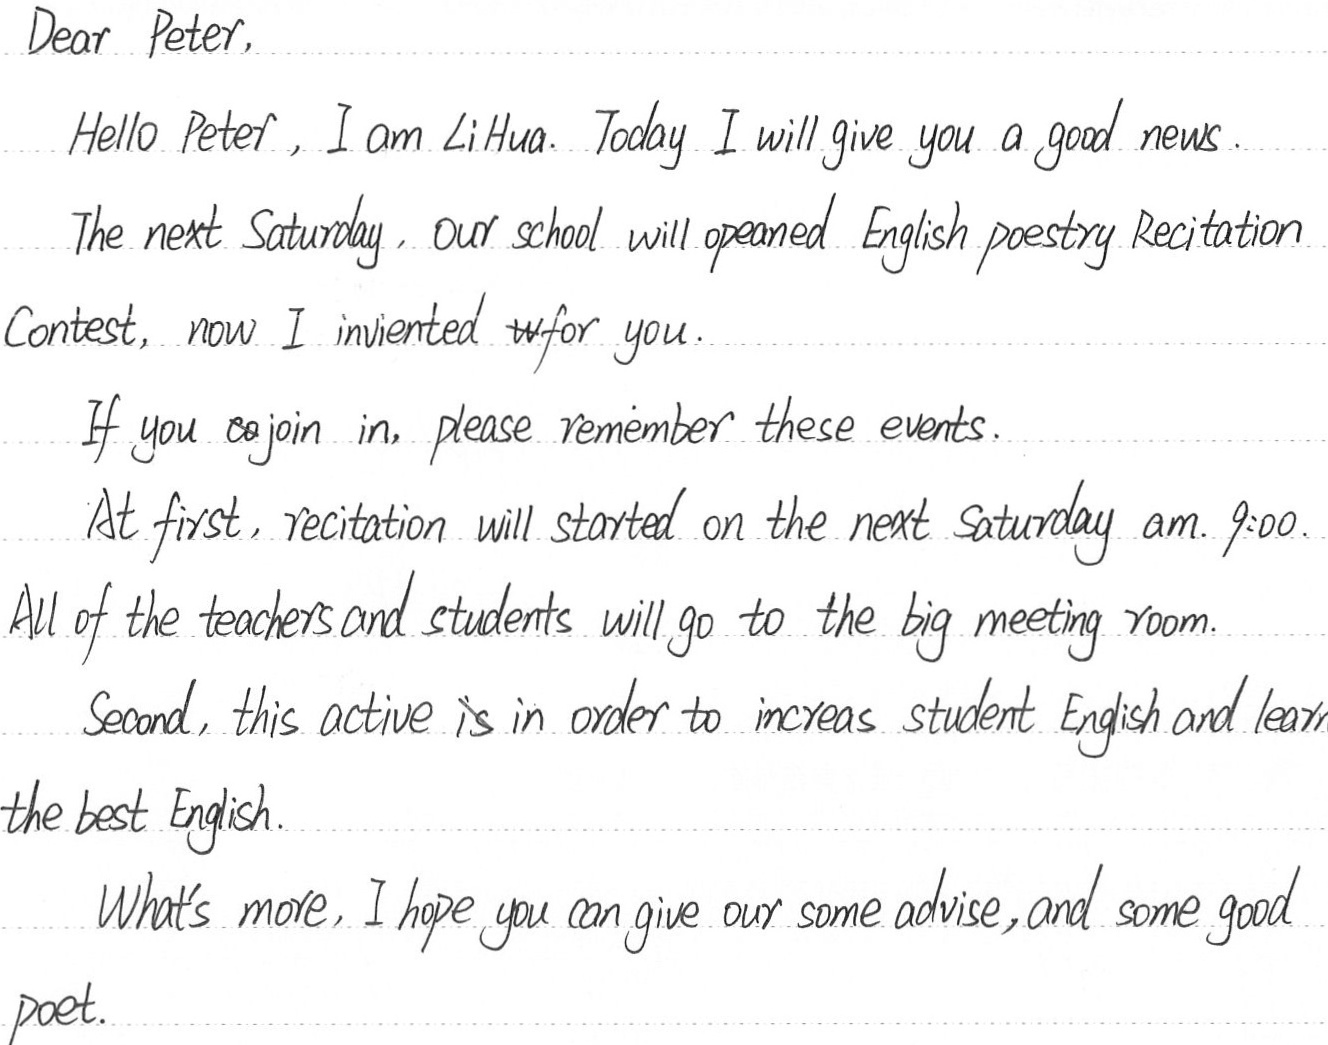 Dear Peter,
Hello Peter, I am LiHua. Today I will give you a good news.
The next Saturday, our school will opeaned English poestry Recitation
Contest, now I inviented for you.
If you join in, please remember these events.
At first, recitation will started on the next Saturday am. 9:00.
All of the teachers and students will go to the big meeting room.
Second, this active is in order to increas student English and learn
the best English.
What's more, I hope you can give our some advise, and some good
poet.